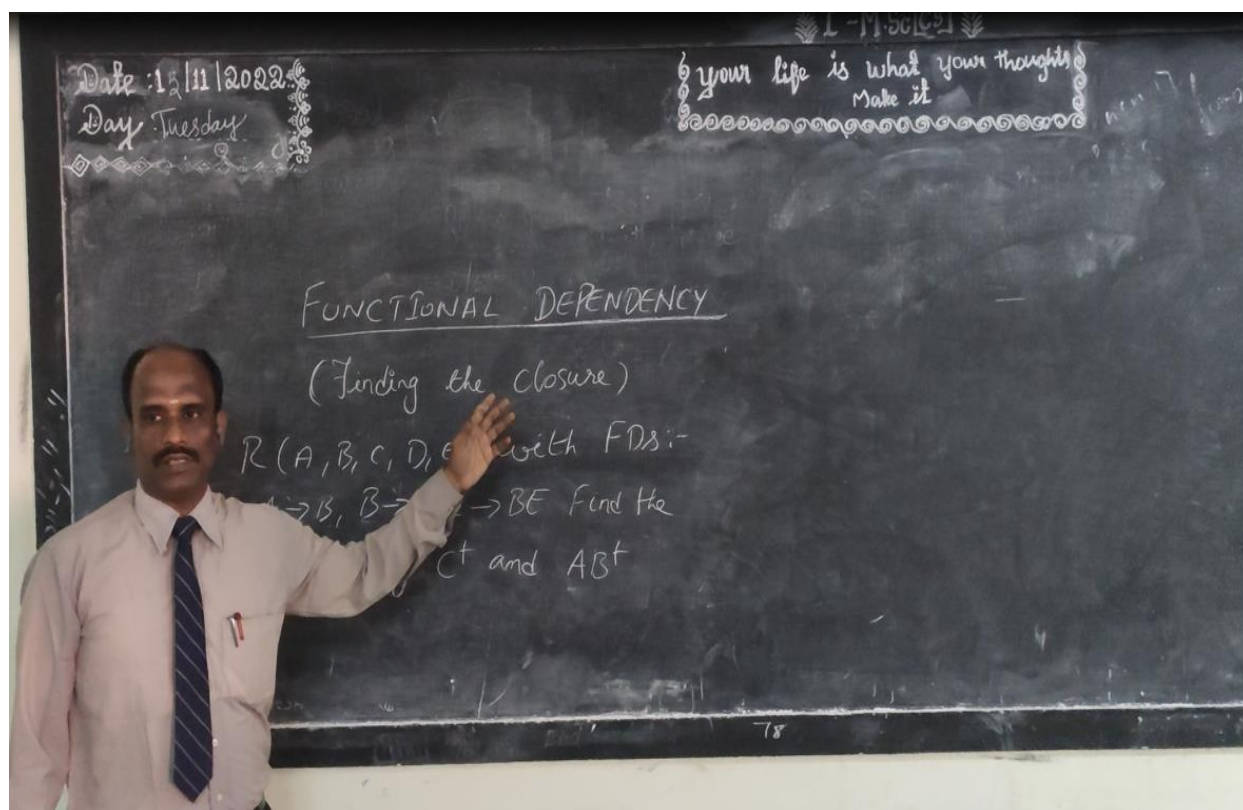 I - M.Sc[CS]
Date : 15/11/2022
Day : Tuesday
your life is what your thoughts
Make it
FUNCTIONAL DEPENDENCY
(Finding the closure)
R(A, B, C, D, with FDs:-
→B, B→ →BE Find the
C⁺ and AB⁺
78